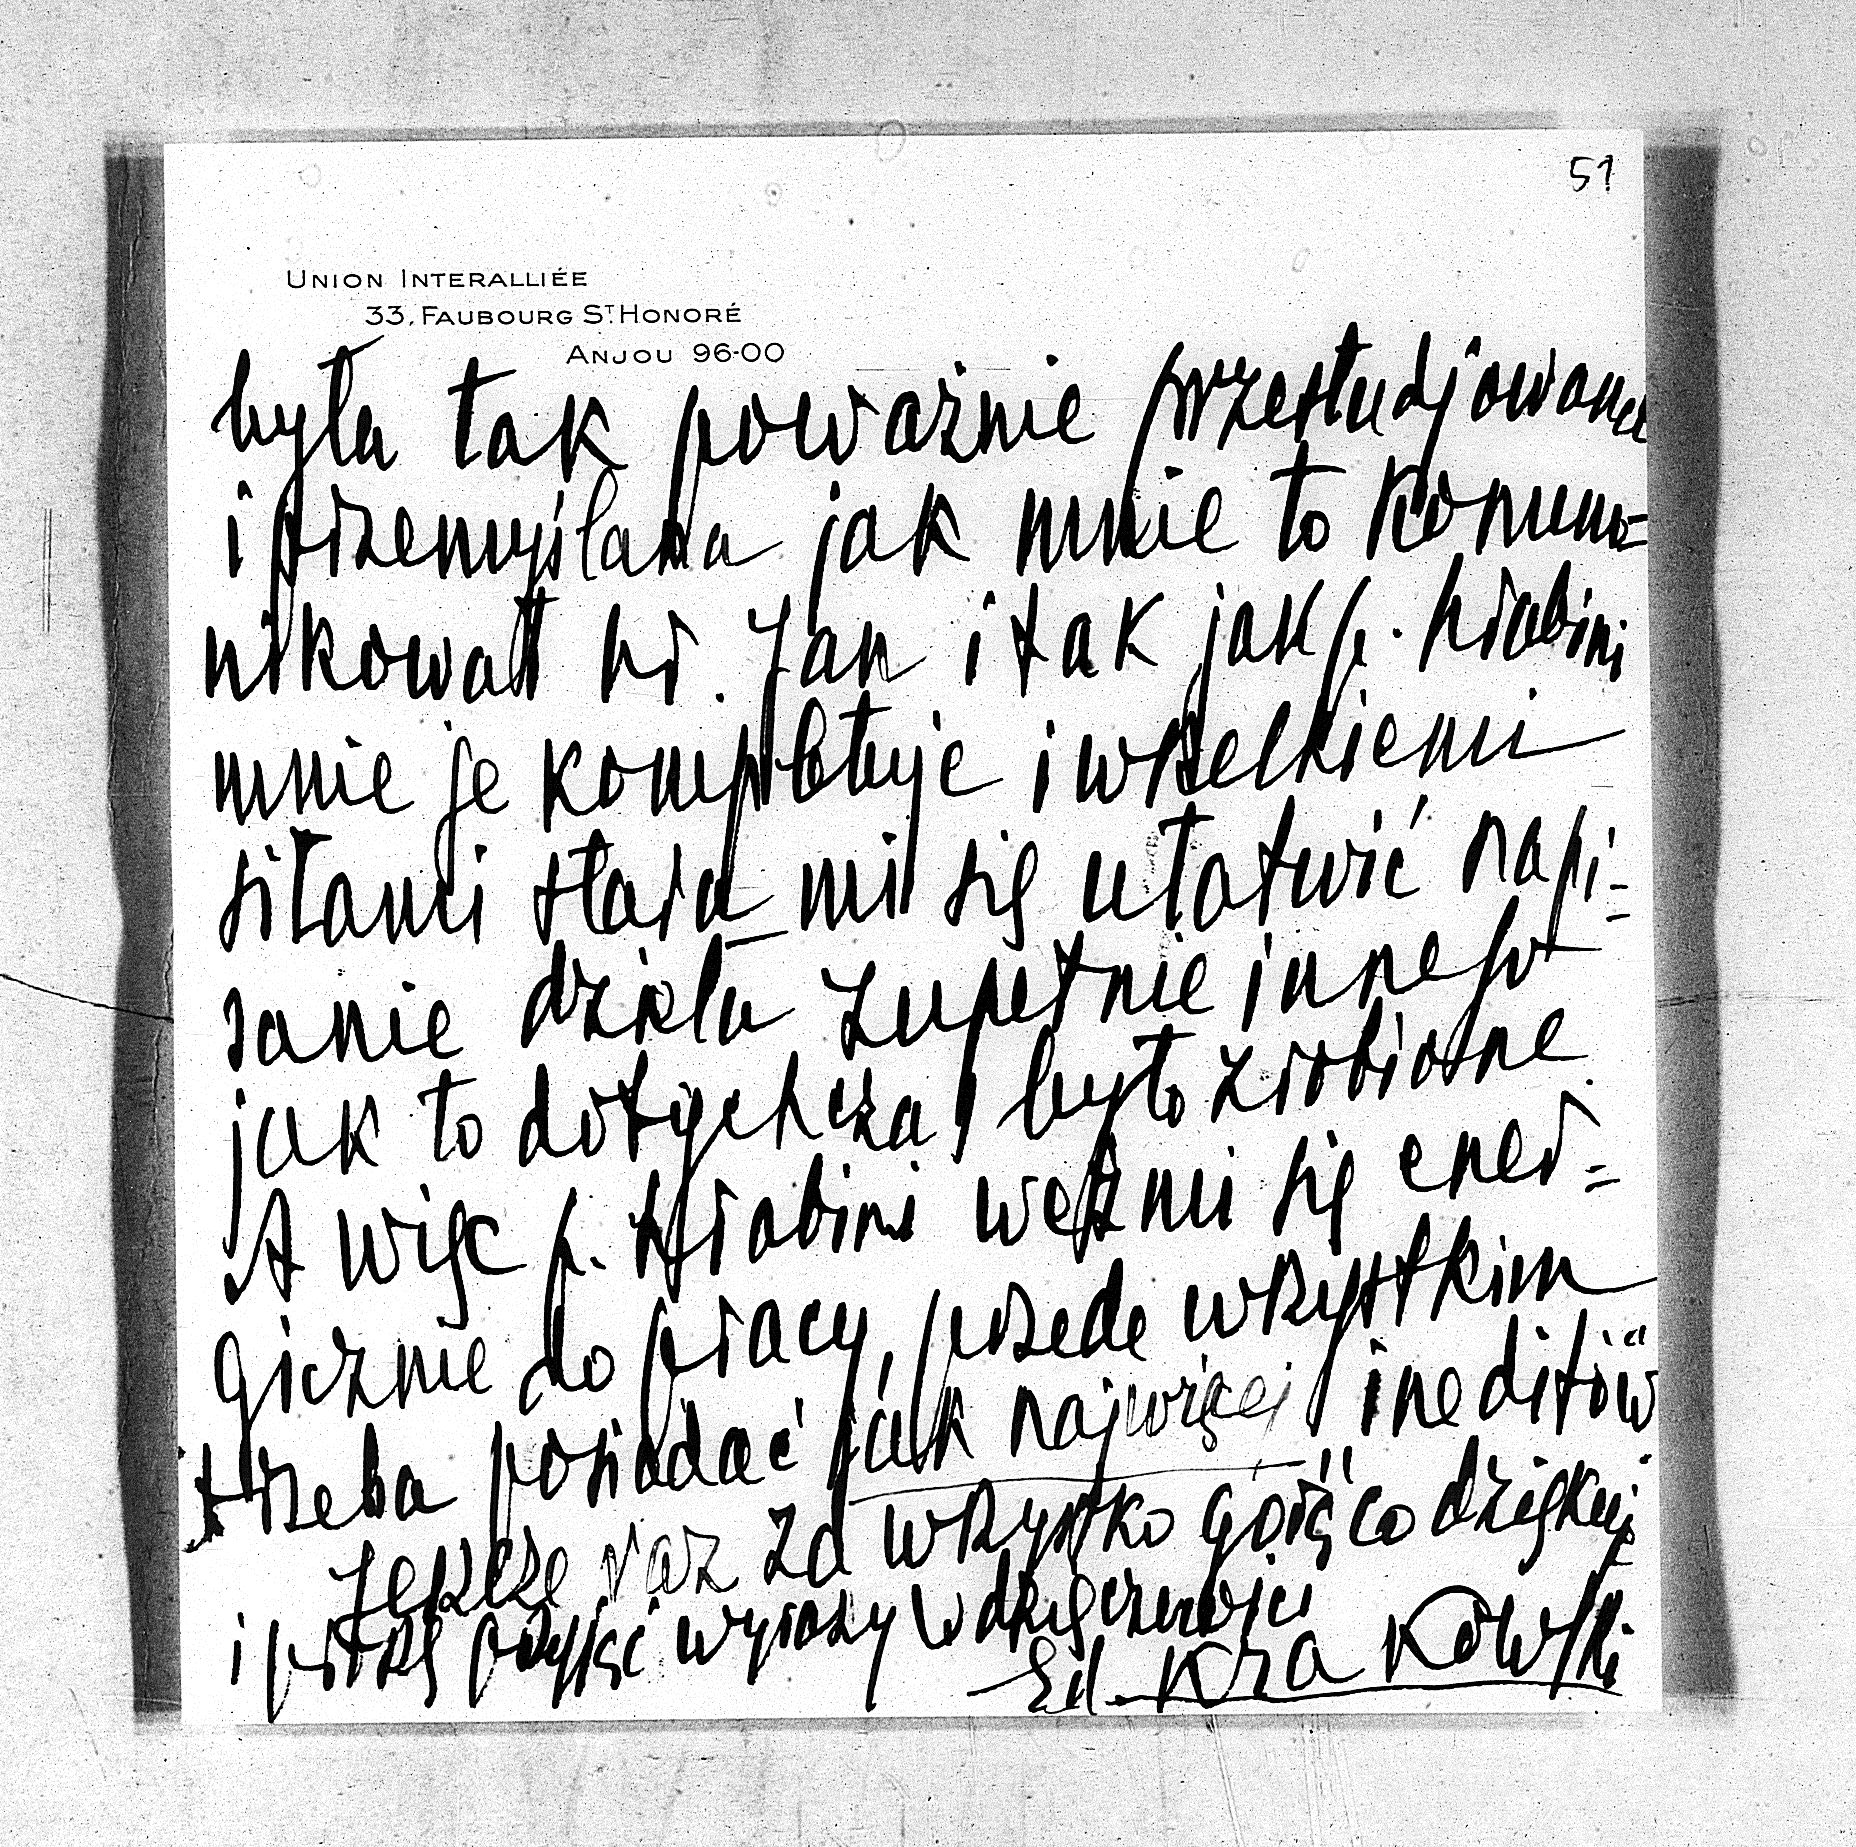 51
UNION INTERALLIÉE
33, FAUBOURG ST. HONORÉ
ANJOU 96-00
była tak poważnie przestudjowana
i przemyślana jak mnie to komu=
nikował hr. Jan i tak jak p. hrabini
mnie je kompletuje i wszelkiemi
siłami stara mi się ułatwić napi=
sanie dzieła zupełnie innego
jak to dotychczas było zrobione
A więc p. Hrabini weźmi się ener=
gicznie do pracy, przede wszystkim
trzeba posiadać jak najwięcej ineditów
Jeszcze raz za wszystko gorąco dziękuję
i proszę przyjąć wyrazy wdzięczności
Ed. Krakowski